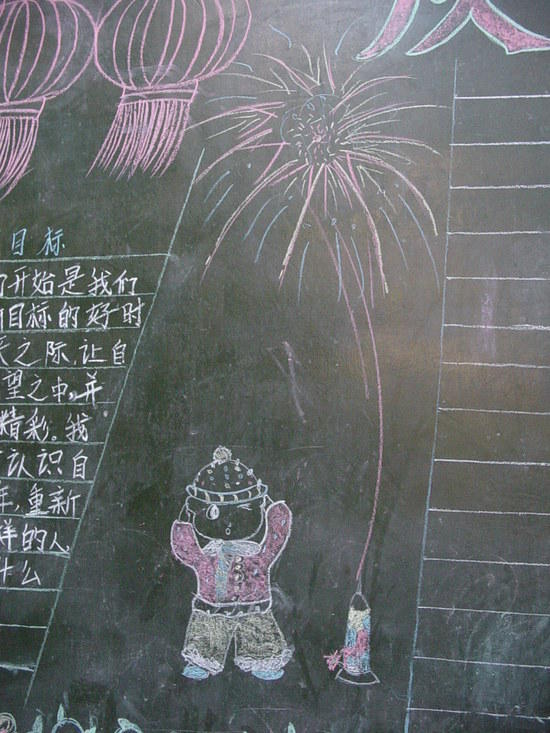 目标
开始是我们
目标的好时
之际,让自
望之中,并
精彩。我
认识自
,重新
样的人
什么